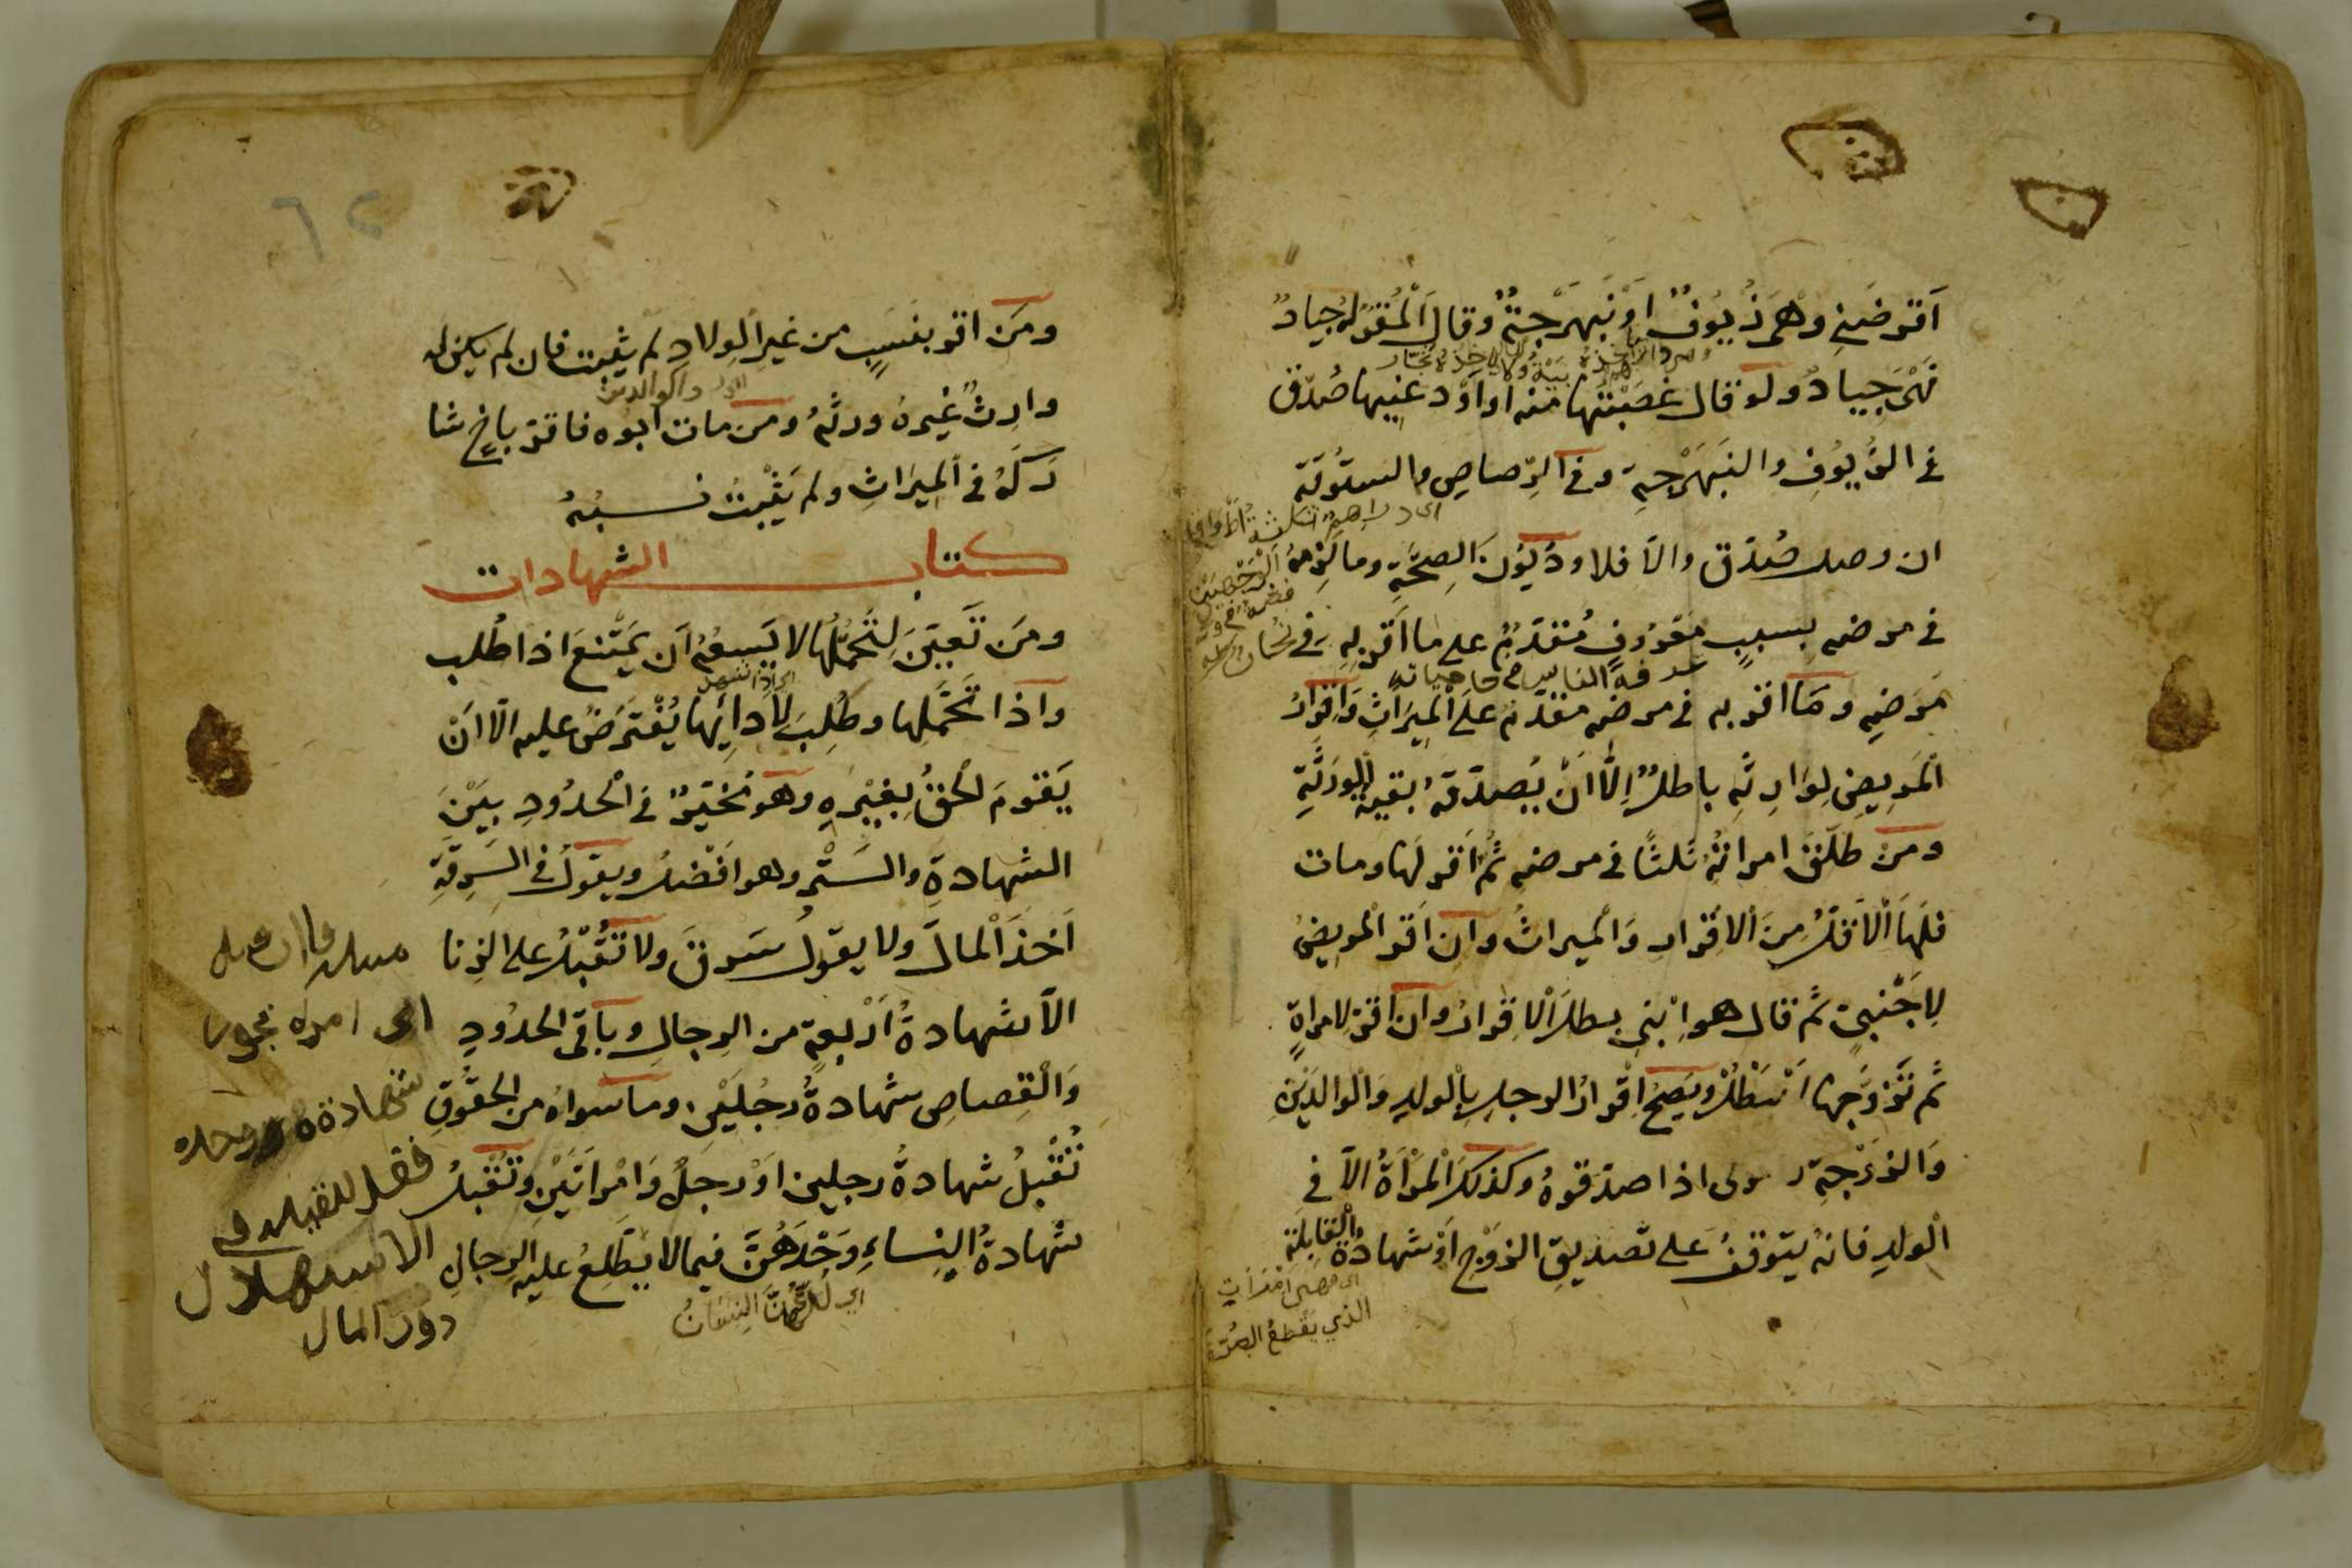 اَقرضني وهي زُيُوفٌ او نَبَهرَجةٌ وقال اَلْمُقَرُّ لهُ جيادٌ
فَهْيَ جِيادٌ ولو قال غصبتُها منه او اَوْدعنيها صُدّق
في الزُّيُوفِ والنبَهْرَجةِ وفي الرّصاصِ والسَتوُّقةِ
ان وصل صُدّق والاّ فلا ودُيُونُ الصِحَّةِ وما لَزِمهُ
في مرضهِ بسببٍ مَعْرُوفٍ مُقدّمٌ على ما اَقرّ بهِ في
مَرَضِهِ ومَا اقرّ به في مرضهِ مقدّمٌ على اَلْمِيرَاثِ وَاِقرارُ
اَلْمَرِيضِ لِوَارِثهِ باطلٌ اِلّا اَنْ يُصدّقهُ بقيةُ اَلْوَرَثَةِ
ومن طلّقَ امراتهُ ثلثًا في مرضهِ ثُمَّ اَقرّ لها ومات
فلَهَا اَلْاَقلُّ مِنَ اَلْاِقرارِ وَاَلْميراثِ وان اَقرّ المريضُ
لِاَجْنبيٍّ ثم قال هو اِبْني بطل اَلْاِقرارُ وان اقرّ لامراةٍ
ثم تَزوَّجها لم يَبْطُلْ ويَصِحُّ اِقْرارُ الرجلِ بِالْولدِ وَالْوالدَيْنِ
وَالزَوْجةِ والمولى اذا صدّقوهُ وكذلك اَلْمَرْاَةُ الاّ في
اَلْولدِ فانهُ يتوقفُ على تصديقِ الزوْجِ اَوْ شهادةُ القابلةِ
ومَن اقرّ بنَسَبٍ من غيرِ الْوِلادِ لم يثبت فان لم يكن له
وارِثٌ غيرهُ ورثهُ ومن مات اَبُوه فاقرّ باخٍ شا
رَكَهُ في اَلْمِيرَاثِ ولم يَثْبُتْ نسبُهُ
كتاب الشهادات
ومَن تَعيّنَ لِتَحمُّلها لا يَسعُهُ اَن يَمتنعَ اذا طُلب
واذا تَحَمَّلها وطُلِبَ لِاَدائِها يُفْتَرَضُ عليه الّا اَنْ
يَقومَ الحقُّ بِغَيْرِهِ وهو مُخَيّرٌ في اَلْحدُودِ بيَنَ
الشهادةِ والسَتْرِ وهو اَفْضلُ ويقولُ في السَرِقَةِ
اَخذَ اَلْمالَ ولا يقولُ سَرقَ ولا تُقْبَلُ على الزنا
الاّ شهادةُ اَرْبعةٍ من الرجالِ وباقي الحدُودِ
وَالْقِصاصِ شهادةُ رجُلَيْنِ وما سواهُ من الحقُوقِ
تُقْبلُ شهادةُ رجلين اَوْ رجلٌ وَامْراَتَيْنِ وتُقْبلُ
شهادةُ النِساءِ وَحْدَهُنَّ فيما لا يَطّلِعُ عليهِ الرجالِ
الذي يقطعُ الصُرّة
اي اذا شهد
شهادة وحده
فصل للتقبل في
الاستهلال
دون المال